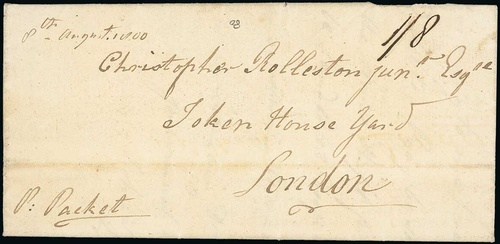 8th August 1800
1/8
Christopher Rolleston junr. Esqre
Token House Yard
London
P: Packet